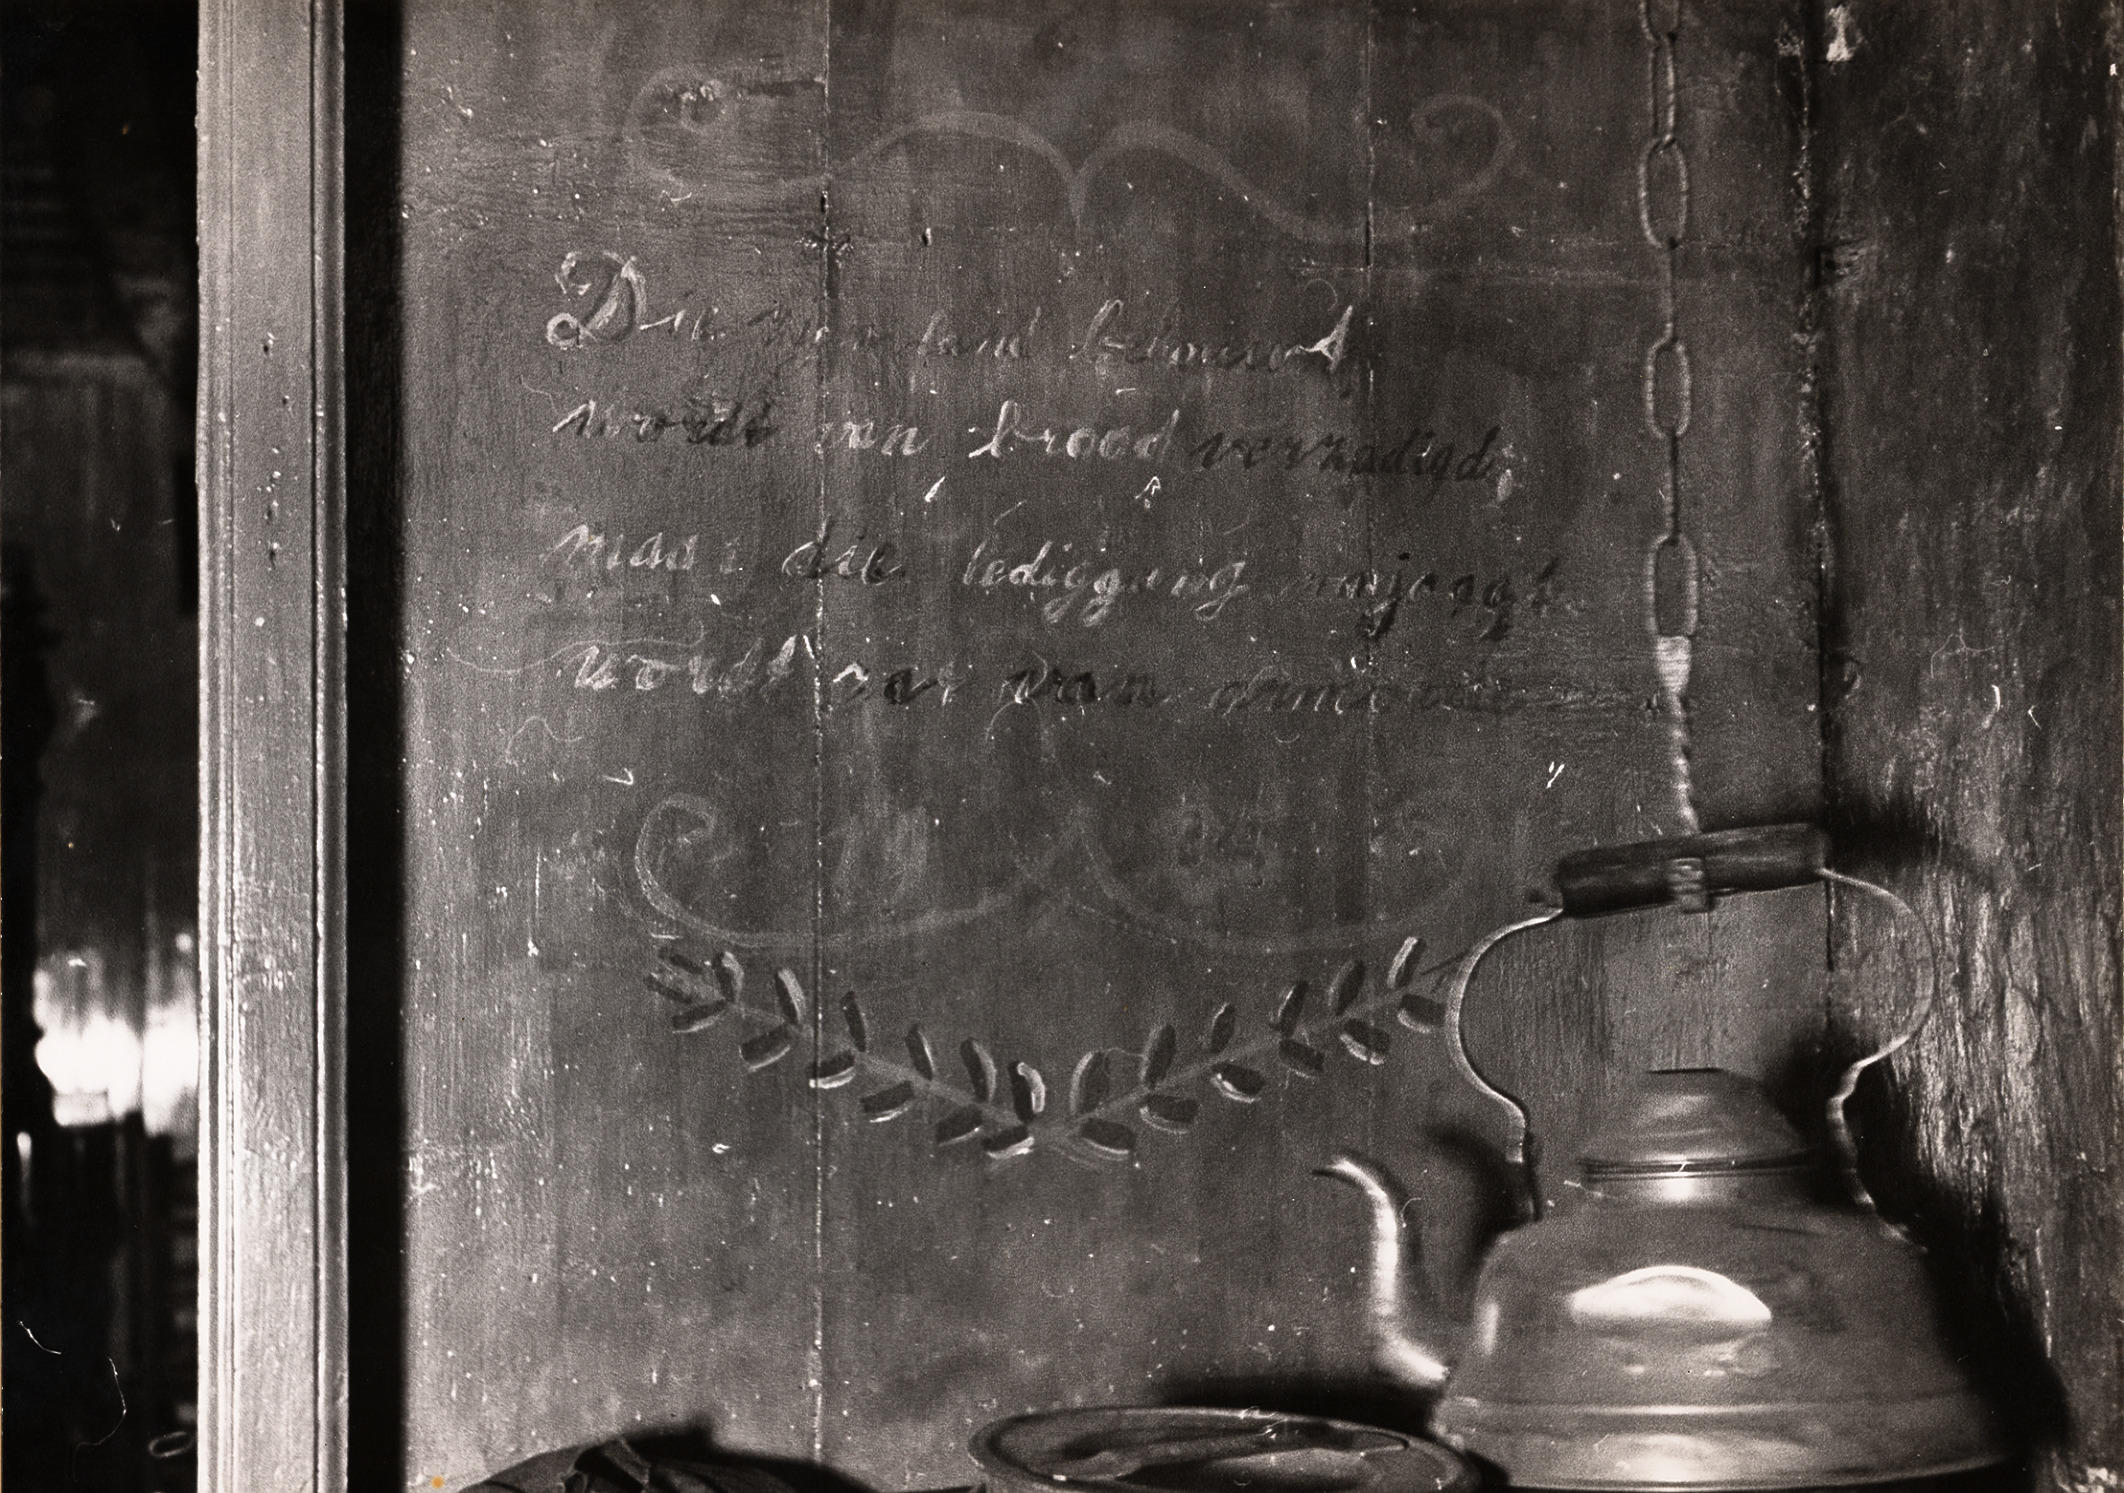 Die zijn land bebouwd,
wordt van brood verzadigd,
maar die lediggang najaagt
wordt zat van